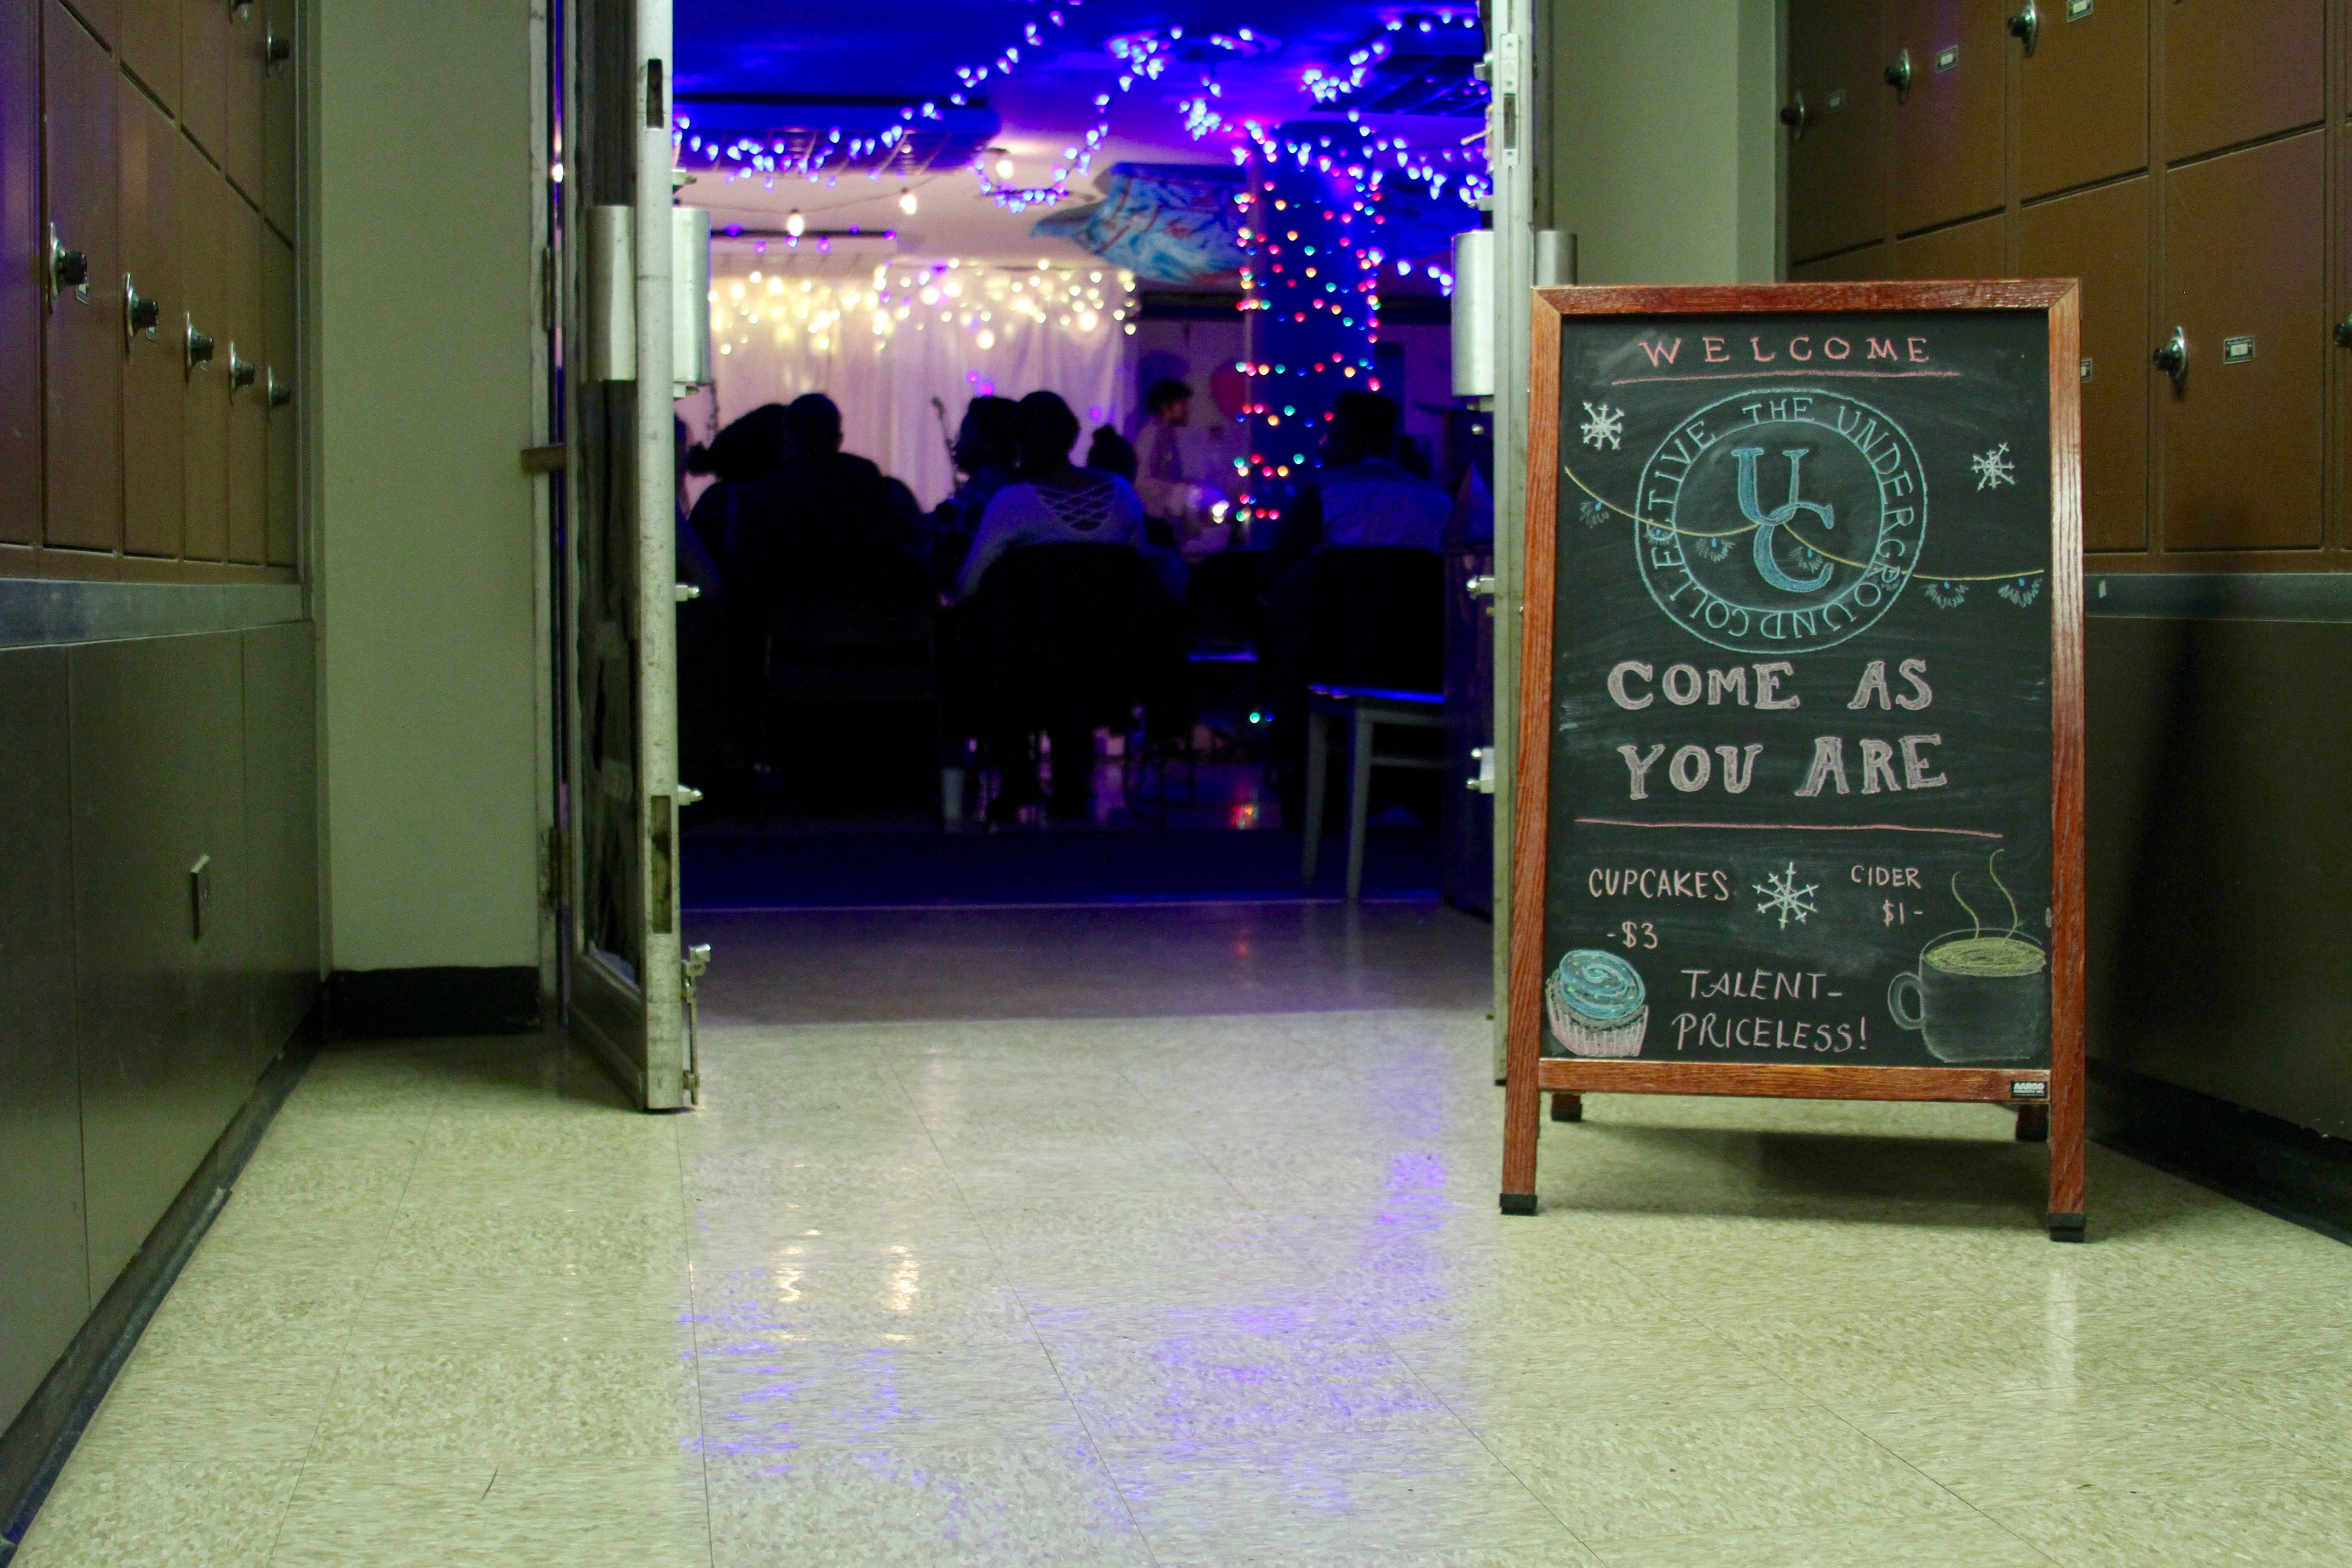 WELCOME
THE UNDERGROUND COLLECTIVE
UC
COME AS
YOU ARE
CUPCAKES
-$3
CIDER
$1-
TALENT-
PRICELESS!
AARCO